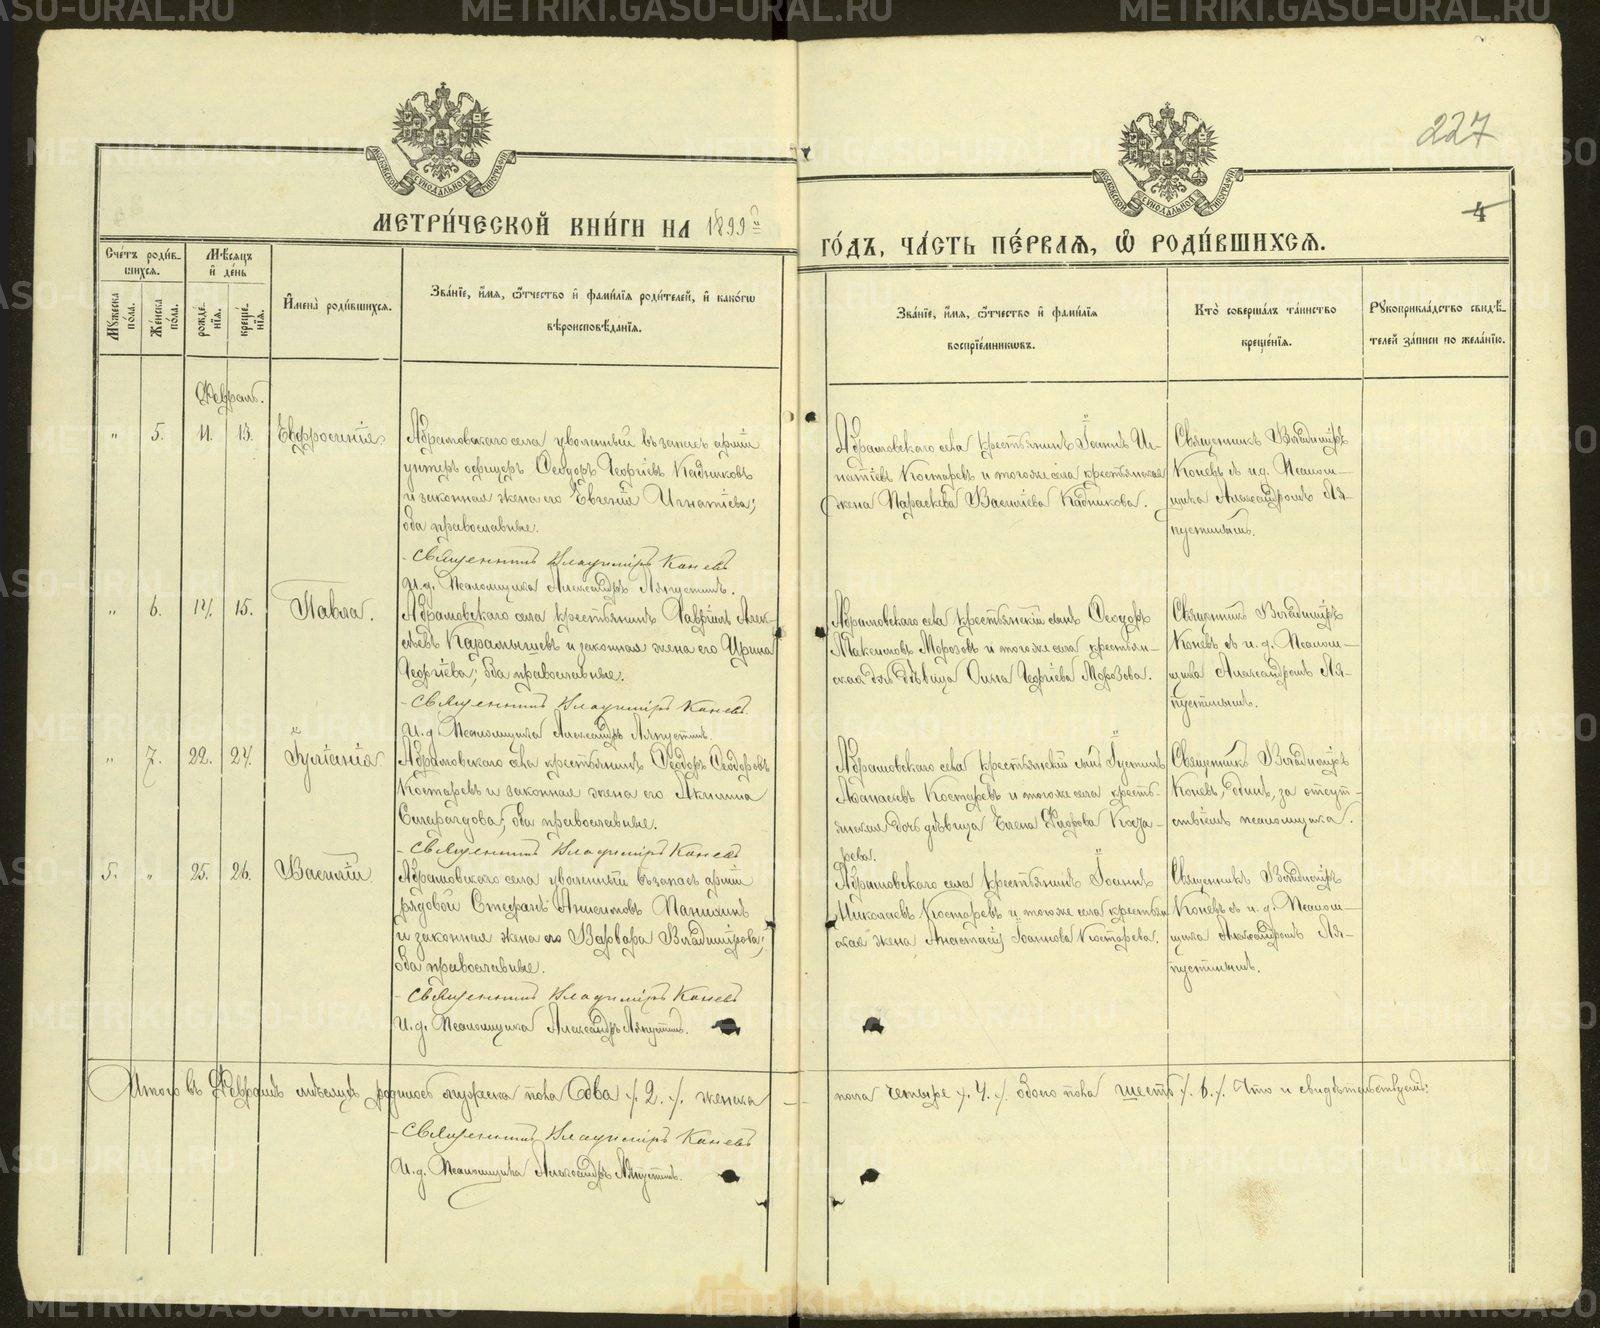 METRIKI.GASO-URAL.RU
227
МОСКОВСКОЙ СУНОДАЛЬНОЙ ТИПОГРАФІИ
МОСКОВСКОЙ СУНОДАЛЬНОЙ ТИПОГРАФІИ
4
МЕТРИ́ЧЕСКОЙ КНИ́ГИ НА 1899 й
ГО́ДЪ, ЧА́СТЬ ПЕ́РВАѦ, Ѡ҆ РОДИ́ВШИХСѦ.
Сче́тъ роди́в-
шихсѧ.
Мꙋ́жеска по́ла.
Же́нска по́ла.
Мѣ́сѧцъ и҆ де́нь
рожде́-нїѧ.
креще́-нїѧ.
И҆мена̀ роди́вшихсѧ.
Зва́нїе, и҆́мѧ, ѻ҆́тчество и҆ фами́лїѧ роди́телей, и҆ како́гѡ
вѣроисповѣ́данїѧ.
Зва́нїе, и҆́мѧ, ѻ҆́тчество и҆ фами́лїѧ
воспрїе́мникѡвъ.
Кто̀ соверша́лъ та́инство
креще́нїѧ.
Рꙋкоприкла́дство свидѣ́-
телей за́писи по жела́нїю.
Февраль.
" 5. 11. 13. Евфросинія
Абрамовскаго села уволенный въ запасъ арміи
унтеръ офицеръ Ѳеодоръ Георгіевъ Кадниковъ
и законная жена его Евгенія Игнатіева;
оба православные.
Священникъ Владиміръ Коневъ
И.д. Псаломщика Александръ Ляпустинъ.
Абрамовскаго села крестьянинъ Іоаннъ Иг-
натіевъ Костаревъ и того же села крестьянская
жена Параскева Василіева Кадникова.
Священникъ Владиміръ
Коневъ съ и.д. Псалом-
щика Александромъ Ля-
пустинымъ.
" 6. 14. 15. Павла.
Абрамовскаго села крестьянинъ Гавріилъ Алек-
сѣевъ Карамышевъ и законная жена его Ирина
Георгіева; оба православные.
Священникъ Владиміръ Коневъ.
И.д. Псаломщика Александръ Ляпустинъ.
Абрамовскаго села крестьянскій сынъ Ѳеодоръ
Максимовъ Морозовъ и того же села крестьян-
ская дочь дѣвица Ольга Георгіева Морозова.
Священникъ Владиміръ
Коневъ съ и.д. Псалом-
щика Александромъ Ля-
пустинымъ.
" 7. 22. 24. Іуліанія
Абрамовскаго села крестьянинъ Ѳеодоръ Ѳеодоровъ
Костаревъ и законная жена его Акилина
оба православные.
Священникъ Владиміръ Коневъ
Абрамовскаго села крестьянскій сынъ Іустинъ
Аѳанасіевъ Костаревъ и того же села кресть-
янская дочь дѣвица Елена Ѳедорова Коста-
рева.
Священникъ Владиміръ
Коневъ, одинъ, за отсут-
ствіемъ псаломщика.
5. " 25. 26. Василій
Абрамовскаго села уволенный въ запасъ арміи
рядовой Стефанъ Анисимовъ Панихинъ
и законная жена его Варвара Владимірова;
оба православные.
Священникъ Владиміръ Коневъ
И.д. Псаломщика Александръ Ляпустинъ.
Абрамовскаго села крестьянинъ Іоаннъ
Николаевъ Костаревъ и того же села крестьян
ская жена Анастасія Іоаннова Костарева.
Священникъ Владиміръ
Коневъ съ и.д. Псалом-
щика Александромъ Ля-
пустинымъ.
Итого въ Февралѣ мѣсяцѣ родилось мужеска пола два /. 2. /. женска
пола четыре /. 4. /. обоего пола шесть /. 6. /. Что и свидѣтельствуемъ:
Священникъ Владиміръ Коневъ
И.д. Псаломщика Александръ Ляпустинъ.